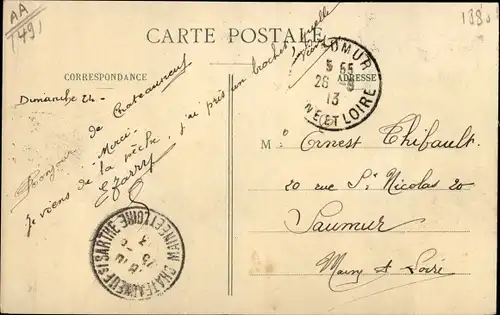 AA
(49)
1880
CARTE POSTALE
CORRESPONDANCE
ADRESSE
SAUMUR
5 55
26 -9
13
MAINE-ET-LOIRE
Dimanche 24-
Bonjour de Chateauneuf
-Merci-
Je viens de la pêche, j'ai pris un brochet
M: Ernest Thibault
20 rue St Nicolas 20
Saumur
Maine & Loire
CHATEAUNEUF S/ SARTHE
MAINE ET LOIRE